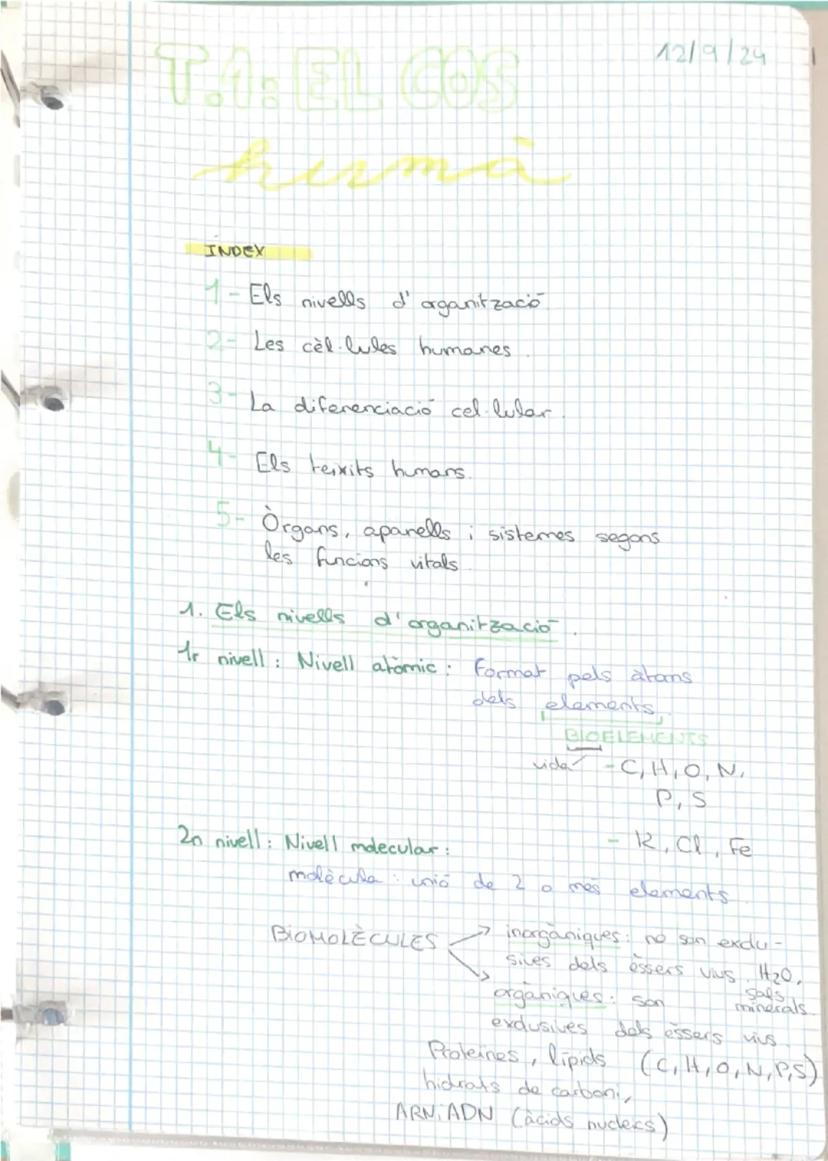 12/9/24
T.1: EL COS
humà
INDEX
1- Els nivells d'organització
2- Les cèl·lules humanes.
3- La diferenciació cel·lular.
4- Els teixits humans.
5- Òrgans, aparells i sistemes segons
les funcions vitals
1. Els nivells d'organització.
1r nivell: Nivell atòmic: Format pels àtoms
dels elements
BIOELEMENTS
vida - C, H, O, N,
P, S
- K, Cl, Fe
2n nivell: Nivell molecular:
molècula: unió de 2 o més elements
BIOMOLÈCULES
inorgàniques: no son exclu-
sives dels èssers vius. H2O,
sals
minerals
orgàniques: son
exclusives dels èssers vius.
Proteines, lípids (C, H, O, N, P, S)
hidrats de carboni,
ARN i ADN (àcids nucleics)